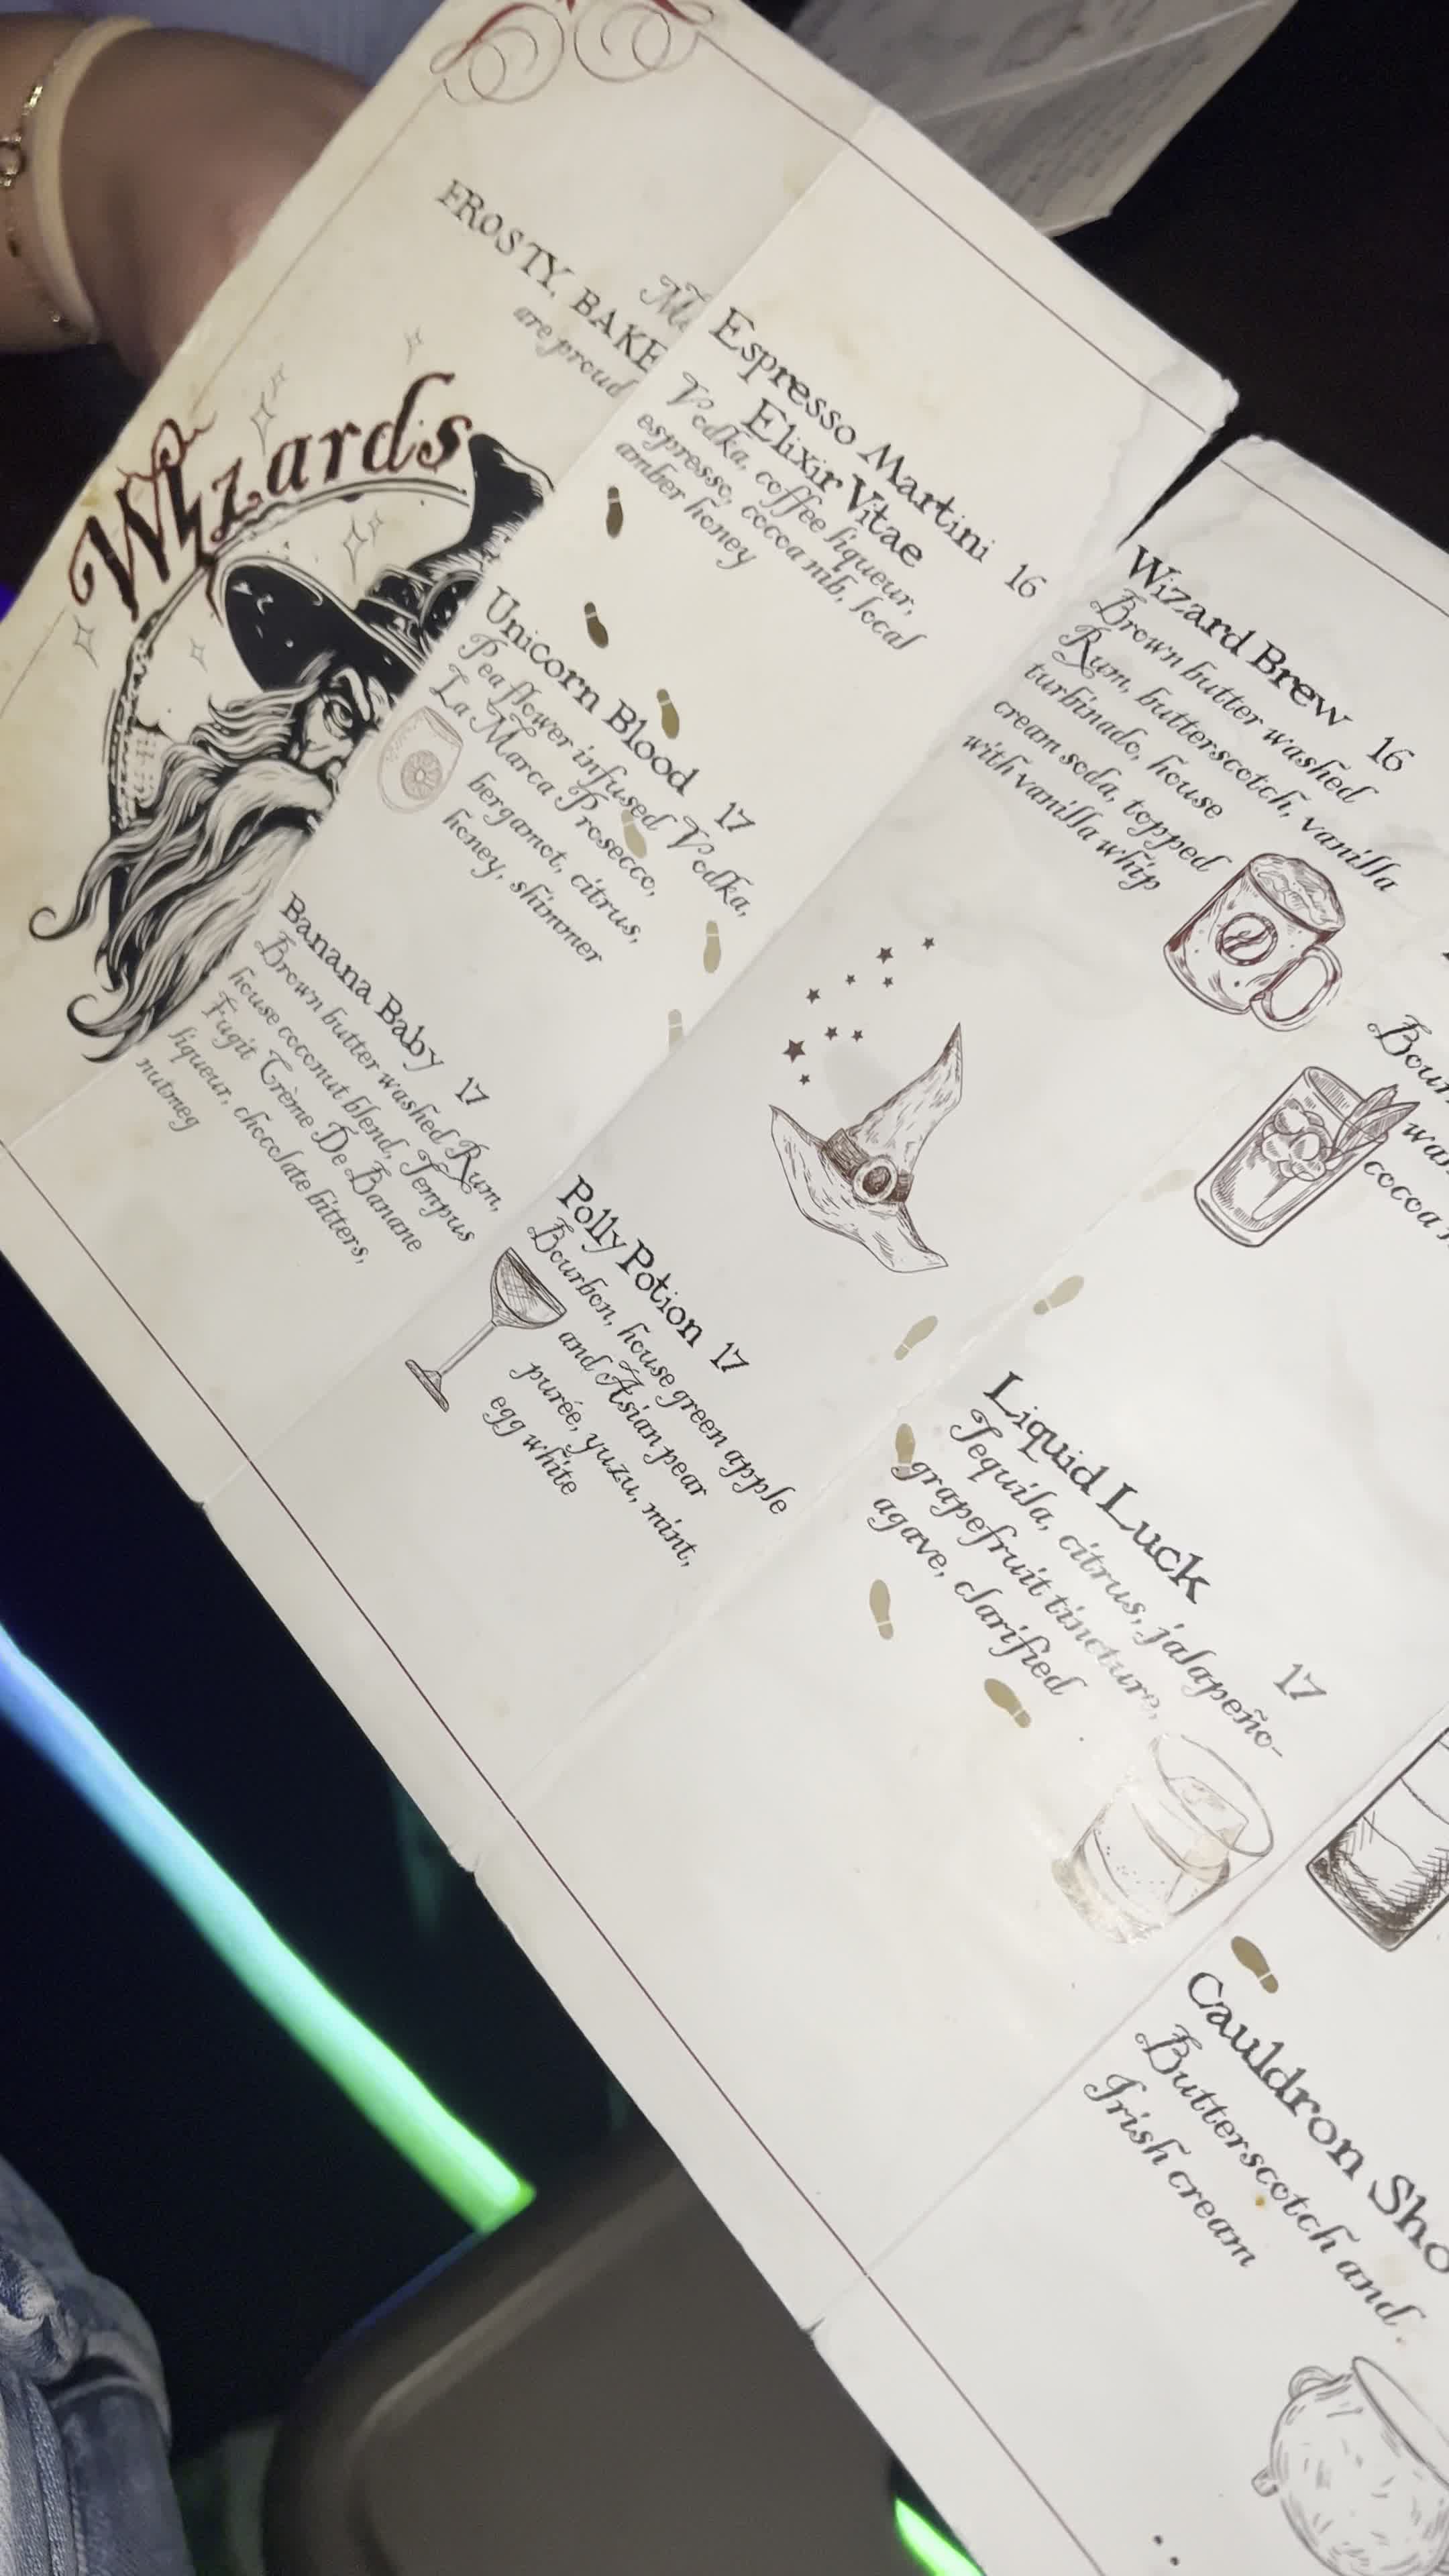 Wizards
FROSTY, BAKE
are proud
Espresso Martini
Elixir Vitae 16
Vodka, coffee liqueur,
espresso, cocoa nib, local
amber honey
Unicorn Blood 17
Pea flower infused Vodka,
La Marca Prosecco,
bergamot, citrus,
honey, shimmer
Banana Baby 17
Brown butter washed Rum,
house coconut blend, Tempus
Fugit Crème De Banane
liqueur, chocolate bitters,
nutmeg
Polly Potion 17
Bourbon, house green apple
and Asian pear
purée, yuzu, mint,
egg white
Wizard Brew 16
Brown butter washed
Rum, butterscotch, vanilla
turbinado, house
cream soda, topped
with vanilla whip
Bour
was
cocoa
Liquid Luck 17
Tequila, citrus, jalapeño-
grapefruit tincture,
agave, clarified
Cauldron Sho
Butterscotch and
Irish cream